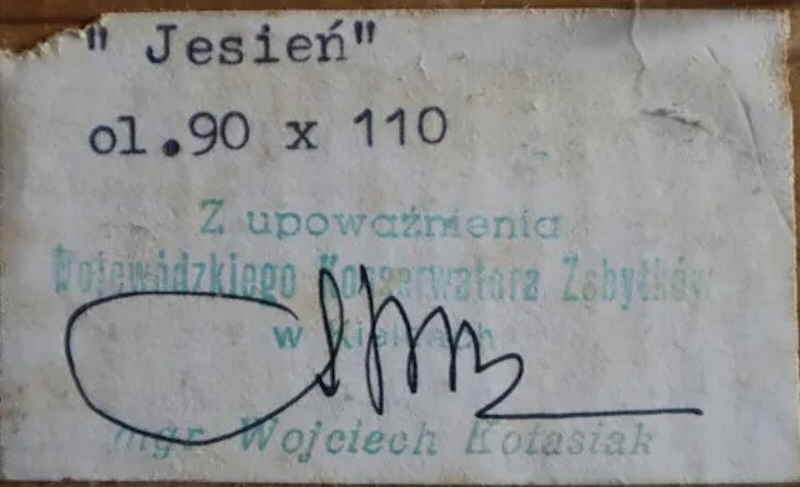 " Jesień"
ol.90 x 110
Z upoważnienia
Wojewódzkiego Konserwatora Zabytków
w Kielcach
mgr Wojciech Kotasiak